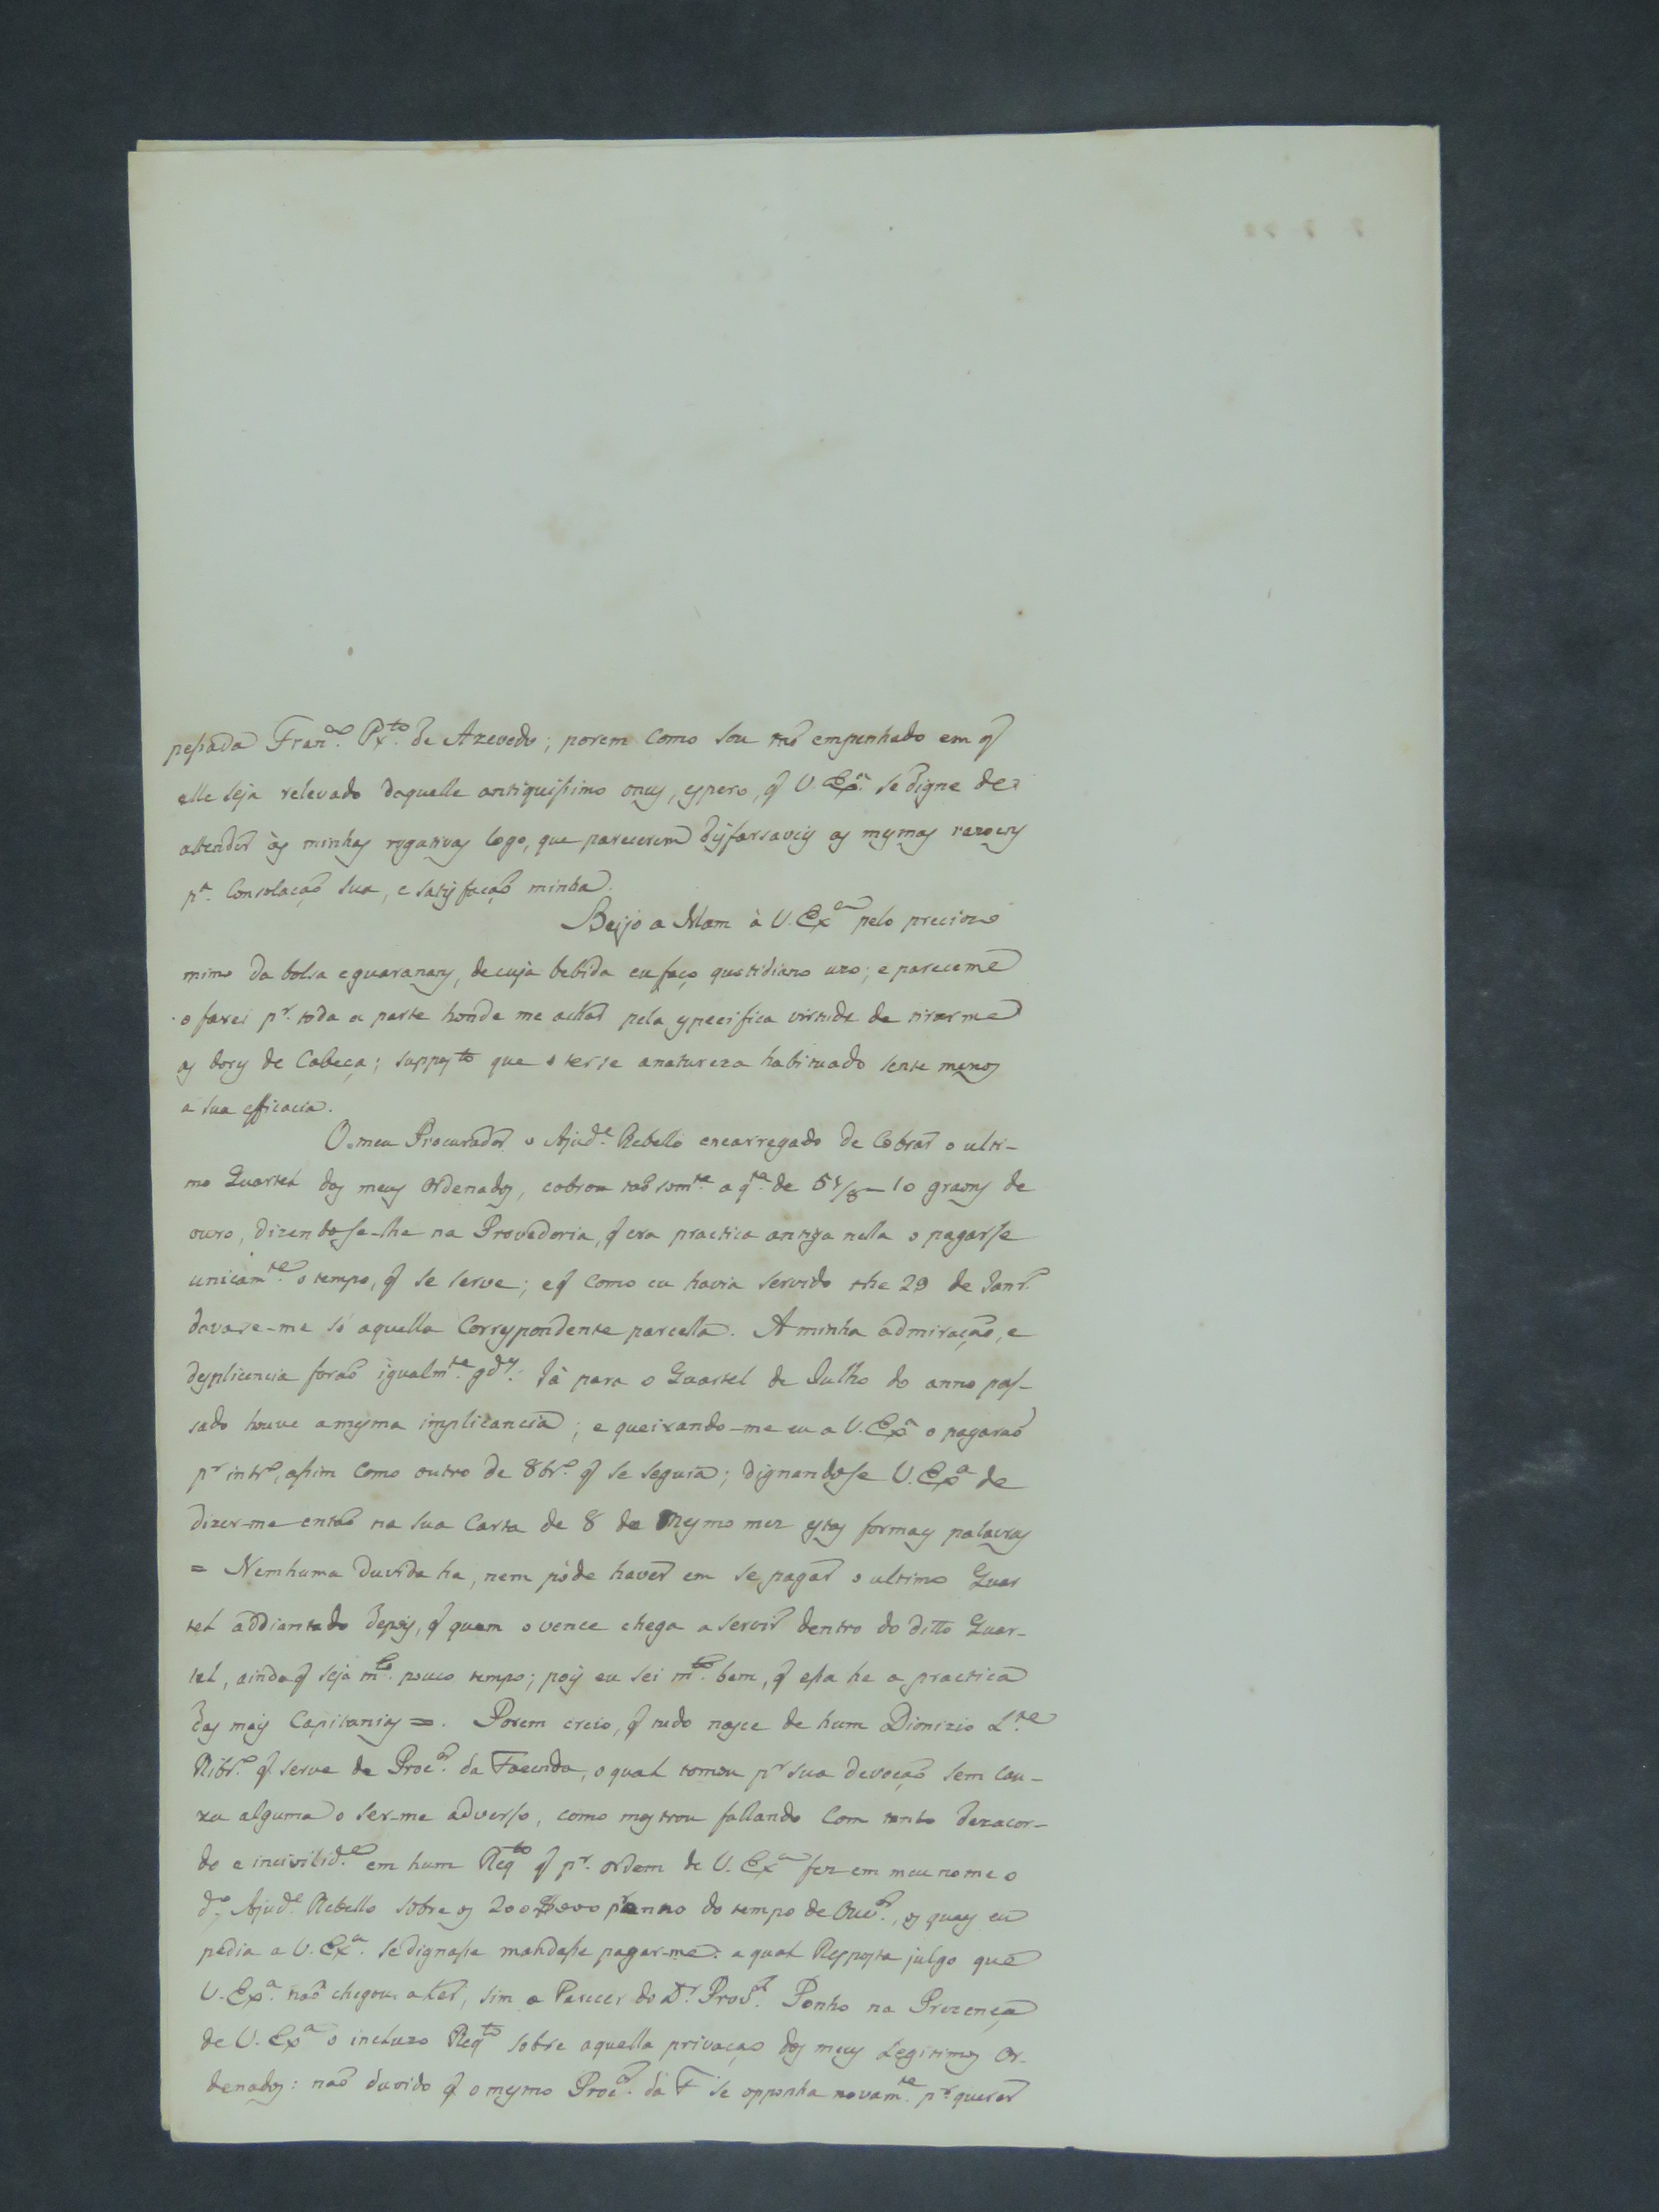 pessada Fran.co Px.to de Azevedo; porem como sou taõ empenhado em q̃
elle seja relevado daquelle antiquissimo onus, espero, q̃ V. Ex.a se digne de
attender às minhas rogativas logo, que parecerem disfarsaveis as mesmas razoens
p.a Consolaçaõ sua, e satisfaçaõ minha.
Beijo a Mam à V. Ex.a pelo preciozo
mimo da bolsa e guaranas, de cuja bebida eu faço quotidiano uzo; e pareceme
o farei p.r toda a parte honde me achar pela especifica virtude de tirarme
as dores de Cabeça; supposto que o terse a natureza habituado sente menos
a sua efficacia.
O meu Procurador o Ajud.e Rebello encarregado de Cobrar o ulti-
mo Quartel dos meus Ordenados, cobrou taõ som.te a q.ta de 10 graons de
ouro, dizendose-lhe na Provedoria, q̃ era practica antiga nella o pagarse
unicam.te o tempo, q̃ se serve; e q̃ como eu havia servido the 29 de Janr.o
davase-me só aquella Correspondente parcella. A minha admiraçaõ, e
desplicencia foraõ igualm.te g.des. Já para o Quartel de Julho do anno pas-
sado houve a mesma implicancia; e queixando-me eu a V. Ex.a o pagaraõ
p.r intr.o, assim como outro de 8br.o q̃ se seguia; dignandose V. Ex.a de
dizer-me entaõ na sua Carta de 8 do mesmo mez estas formaes palavras
= Nemhuma duvida ha, nem póde haver em se pagar o ultimo Quar
tel addiantado depois, q̃ quem o vence chega a servir dentro do ditto Quar-
tel, ainda q̃ seja m.to pouco tempo; pois eu sei m.to bem, q̃ essa he a practica
das mais Capitanias =. Porem creio, q̃ tudo nasce de hum Dionizio L.te
Ribr.o q̃ serve de Proc.or da Fazenda, o qual tomou p.r sua devoçaõ sem cau-
za alguma o ser-me adverso, como mostrou fallando com tanto dezacor-
do e incivilid.e em hum Req.to q̃ p.r ordem de V. Ex.a fez em meu nome o
d.o Ajud.e Rebello sobre os 200$000 p.r anno do tempo de Ouv.or, os quaes eu
pedia a V. Ex.a se dignasse mandasse pagar-me: a qual Resposta julgo que
V. Ex.a naõ chegou a ler, sim o Parecer do D.r Prov.or Ponho na Prezença
de V. Ex.a o incluzo Req.to sobre aquella privaçaõ dos meus Legitimos Or-
denados: naõ duvido q̃ o mesmo Proc.or da F se opponha novam.te p.r querer